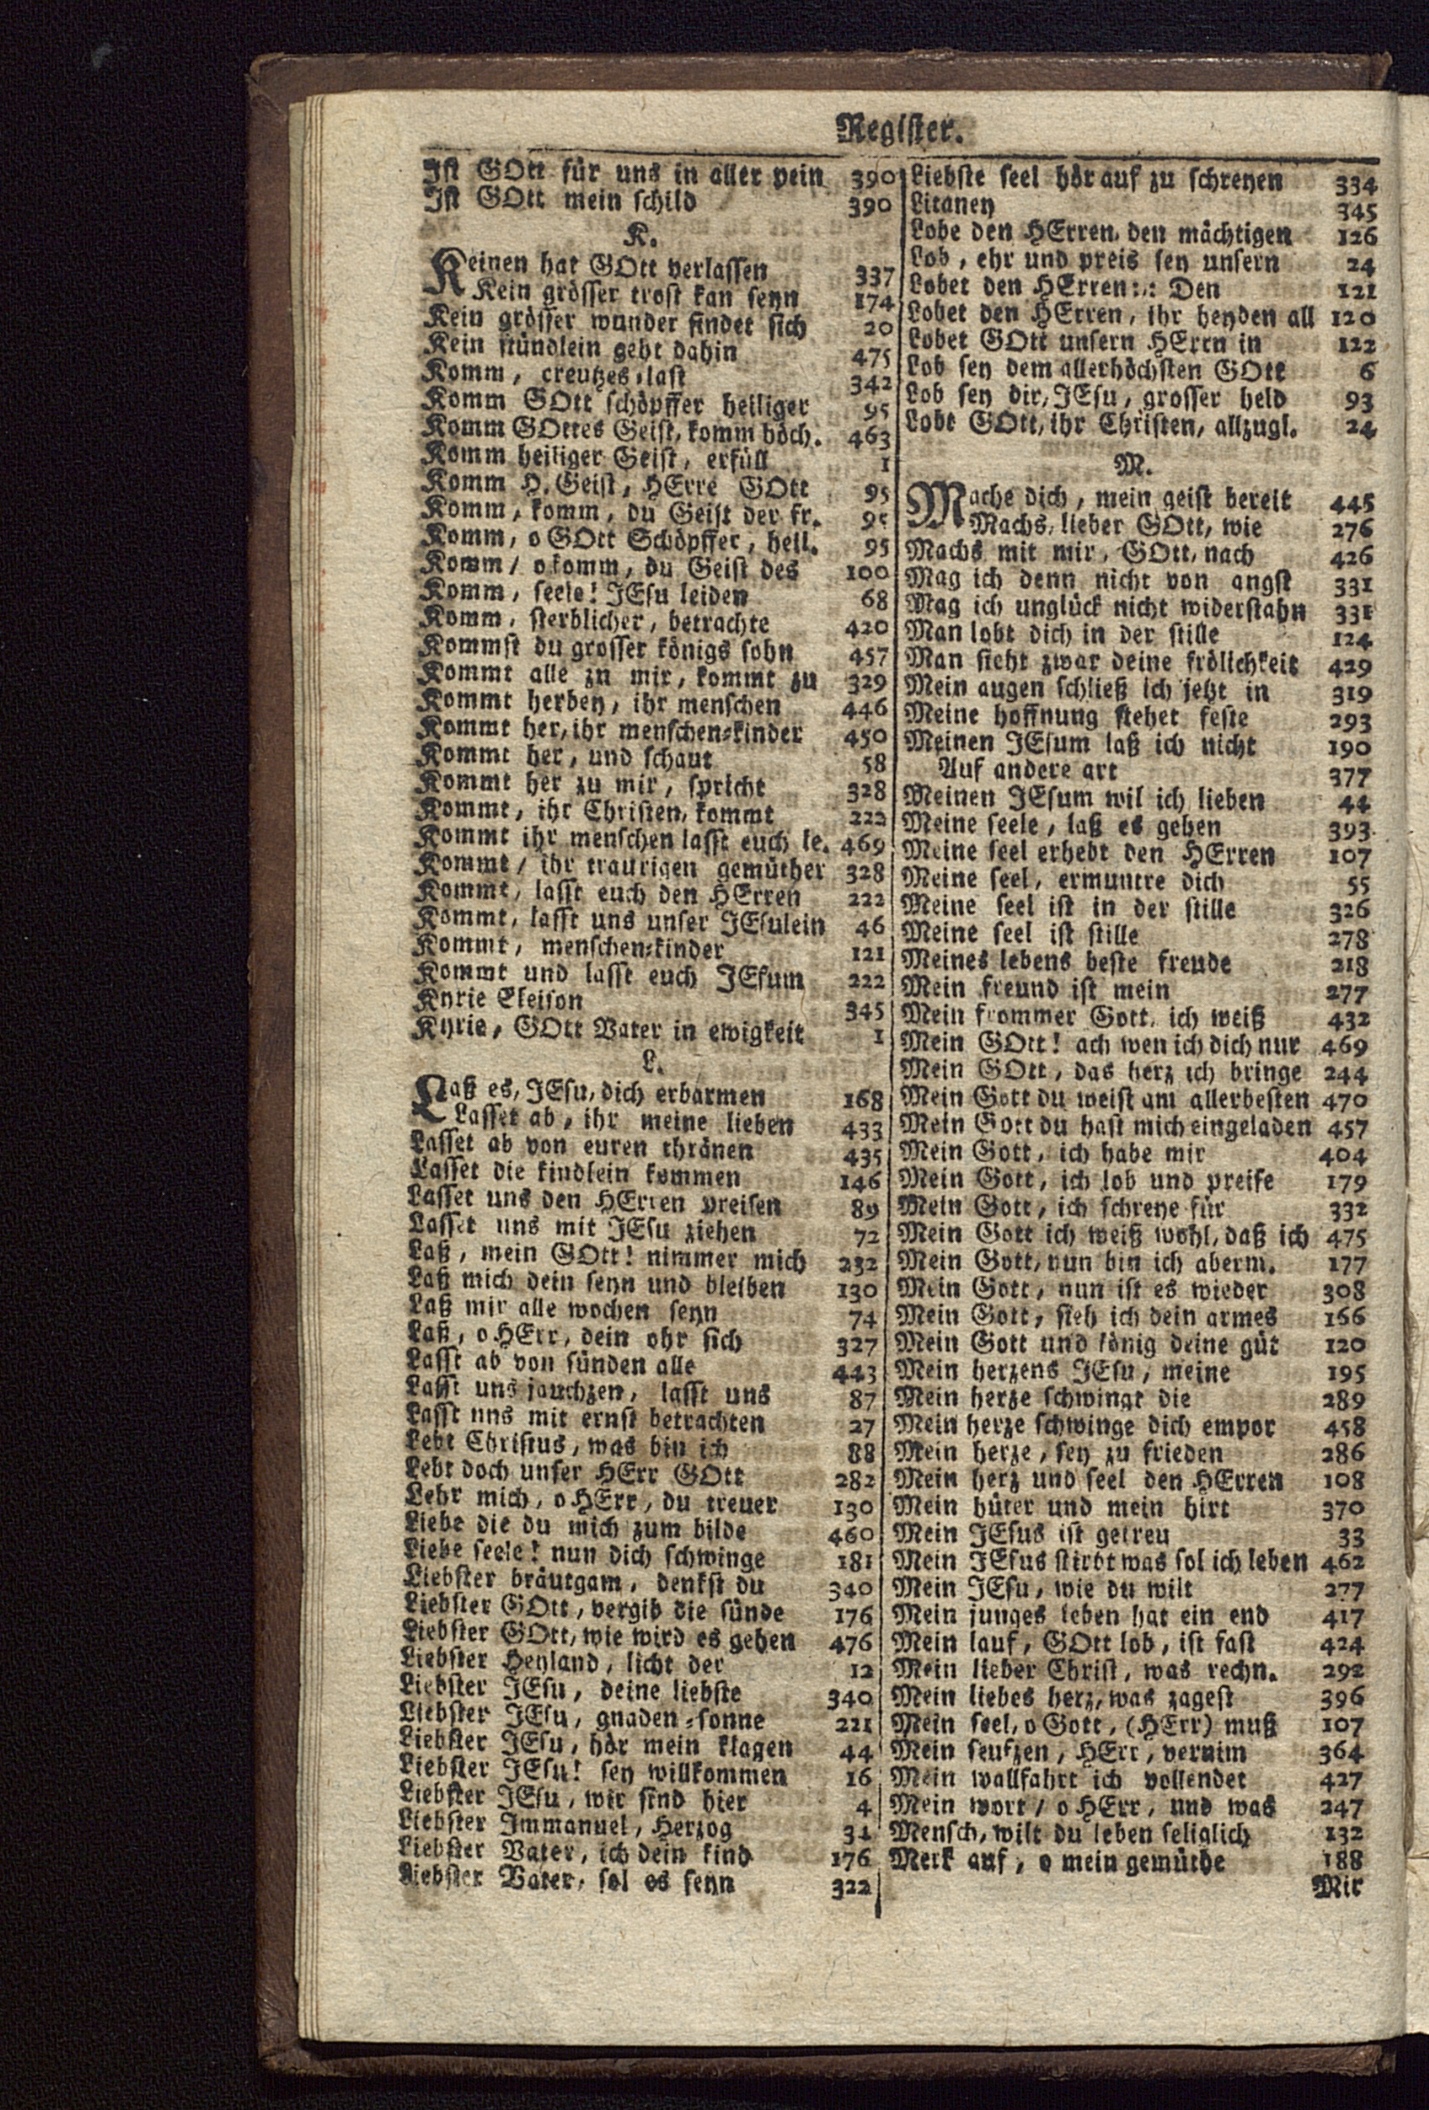 Register.
Ist GOtt für uns in aller pein 390
Ist GOtt mein schild 390
K.
Keinen hat GOtt verlassen 337
Kein grösser trost kan seyn 174
Kein grösser wunder findet sich 20
Kein stündlein geht dahin 475
Komm, creutzes-last 342
Komm GOtt schöpffer heiliger 95
Komm GOttes Geist, komm höch. 463
Komm heiliger Geist, erfüll 1
Komm H. Geist, HErre GOtt 95
Komm, komm, du Geist der fr. 95
Komm, o GOtt Schöpffer, heil. 95
Komm / o komm, du Geist des 100
Komm, seele! JEsu leiden 68
Komm, sterblicher, betrachte 420
Kommst du grosser königs sohn 457
Kommt alle zu mir, kommt zu 329
Kommt herbey, ihr menschen 446
Kommt her, ihr menschen-kinder 450
Kommt her, und schaut 58
Kommt her zu mir, spricht 328
Kommt, ihr Christen, kommt 222
Kommt ihr menschen lasst euch le. 469
Kommt / ihr traurigen gemüther 328
Kommt, lasst euch den HErren 222
Kommt, lasst uns unser JEsulein 46
Kommt, menschen-kinder 121
Kommt und lasst euch JEsum 222
Kyrie Eleison 345
Kyrie, GOtt Vater in ewigkeit 1
L.
Laß es, JEsu, dich erbarmen 168
Lasset ab, ihr meine lieben 433
Lasset ab von euren thränen 435
Lasset die kindlein kommen 146
Lasset uns den HErren preisen 89
Lasset uns mit JEsu ziehen 72
Laß, mein GOtt! nimmer mich 232
Laß mich dein seyn und bleiben 130
Laß mir alle wochen seyn 74
Laß, o HErr, dein ohr sich 327
Lasst ab von sünden alle 443
Lasst uns jauchzen, lasst uns 87
Lasst uns mit ernst betrachten 27
Lebt Christus, was bin ich 88
Lebt doch unser HErr GOtt 282
Lehr mich, o HErr, du treuer 130
Liebe die du mich zum bilde 460
Liebe seele! nun dich schwinge 181
Liebster bräutgam, denkst du 340
Liebster GOtt, vergib die sünde 176
Liebster GOtt, wie wird es gehen 476
Liebster Heyland, licht der 12
Liebster JEsu, deine liebste 340
Liebster JEsu, gnaden-sonne 221
Liebster JEsu, hör mein klagen 44
Liebster JEsu! sey willkommen 16
Liebster JEsu, wir sind hier 4
Liebster Immanuel, Herzog 34
Liebster Vater, ich dein kind 176
Liebster Vater, sol es seyn 322
Liebste seel hör auf zu schreyen 334
Litaney 345
Lobe den HErren, den mächtigen 126
Lob, ehr und preis sey unsern 24
Lobet den HErren:,: Den 121
Lobet den HErren, ihr heyden all 120
Lobet GOtt unsern HErrn in 122
Lob sey dem allerhöchsten GOtt 6
Lob sey dir, JEsu, grosser held 93
Lobt GOtt, ihr Christen, allzugl. 24
M.
Mache dich, mein geist bereit 445
Machs, lieber GOtt, wie 276
Machs mit mir, GOtt, nach 426
Mag ich denn nicht von angst 331
Mag ich unglück nicht widerstahn 331
Man lobt dich in der stille 124
Man sieht zwar deine frölichkeit 429
Mein augen schließ ich jetzt in 319
Meine hoffnung stehet feste 293
Meinen JEsum laß ich nicht 190
Auf andere art 377
Meinen JEsum wil ich lieben 44
Meine seele, laß es gehen 393
Meine seel erhebt den HErren 107
Meine seel, ermuntre dich 55
Meine seel ist in der stille 326
Meine seel ist stille 278
Meines lebens beste freude 218
Mein freund ist mein 277
Mein frommer Gott, ich weiß 432
Mein GOtt! ach wen ich dich nur 469
Mein GOtt, das herz ich bringe 244
Mein Gott du weist am allerbesten 470
Mein Gott du hast mich eingeladen 457
Mein Gott, ich habe mir 404
Mein Gott, ich lob und preise 179
Mein Gott, ich schreye für 332
Mein Gott ich weiß wohl, daß ich 475
Mein Gott, nun bin ich aberm. 177
Mein Gott, nun ist es wieder 308
Mein Gott, sieh ich dein armes 166
Mein Gott und könig deine güt 120
Mein herzens JEsu, meine 195
Mein herze schwingt die 289
Mein herze schwinge dich empor 458
Mein herze, sey zu frieden 286
Mein herz und seel den HErren 108
Mein hüter und mein hirt 370
Mein JEsus ist getreu 33
Mein JEsus stirbt was sol ich leben 462
Mein JEsu, wie du wilt 277
Mein junges leben hat ein end 417
Mein lauf, GOtt lob, ist fast 424
Mein lieber Christ, was rechn. 292
Mein liebes herz, was zagest 396
Mein seel, o Gott, (HErr) muß 107
Mein seufzen, HErr, vernim 364
Mein wallfahrt ich vollendet 427
Mein wort / o HErr, und was 247
Mensch, wilt du leben seliglich 132
Merk auf, o mein gemüthe 188
Mir